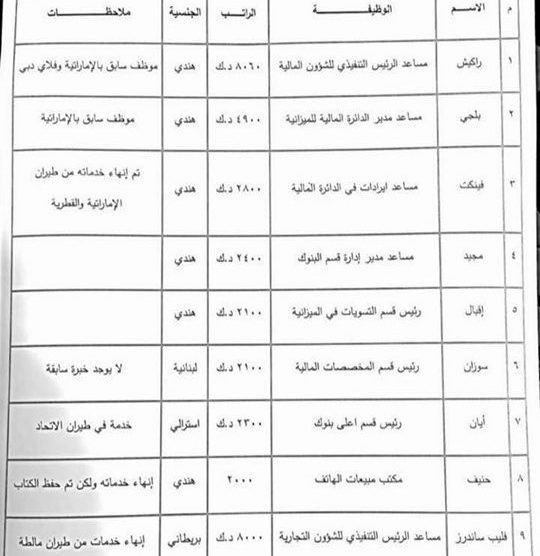 م الاســم الوظيفــــــة الراتــب الجنسية ملاحظـــــــات
١ راكيش مساعد الرئيس التنفيذي للشؤون المالية ٨٠٦٠ د.ك هندي موظف سابق بالإماراتية وفلاي دبي
٢ بلجي مساعد مدير الدائرة المالية للميزانية ٤٩٠٠ د.ك هندي موظف سابق بالإماراتية
٣ فينكت مساعد ايرادات في الدائرة المالية ٢٨٠٠ د.ك هندي تم إنهاء خدماته من طيران
الإماراتية والقطرية
٤ مجيد مساعد مدير إدارة قسم البنوك ٢٤٠٠ د.ك هندي
٥ إقبال رئيس قسم التسويات في الميزانية ٢١٠٠ د.ك هندي
٦ سوزان رئيس قسم المخصصات المالية ٢١٠٠ د.ك لبنانية لا يوجد خبرة سابقة
٧ أيان رئيس قسم اعلى بنوك ٢٣٠٠ د.ك استرالي خدمة في طيران الاتحاد
٨ حنيف مكتب مبيعات الهاتف ٢٠٠٠ هندي إنهاء خدماته ولكن تم حفظ الكتاب
٩ فليب ساندرز مساعد الرئيس التنفيذي للشؤون التجارية ٨٠٠٠ د.ك بريطاني إنهاء خدمات من طيران مالطة